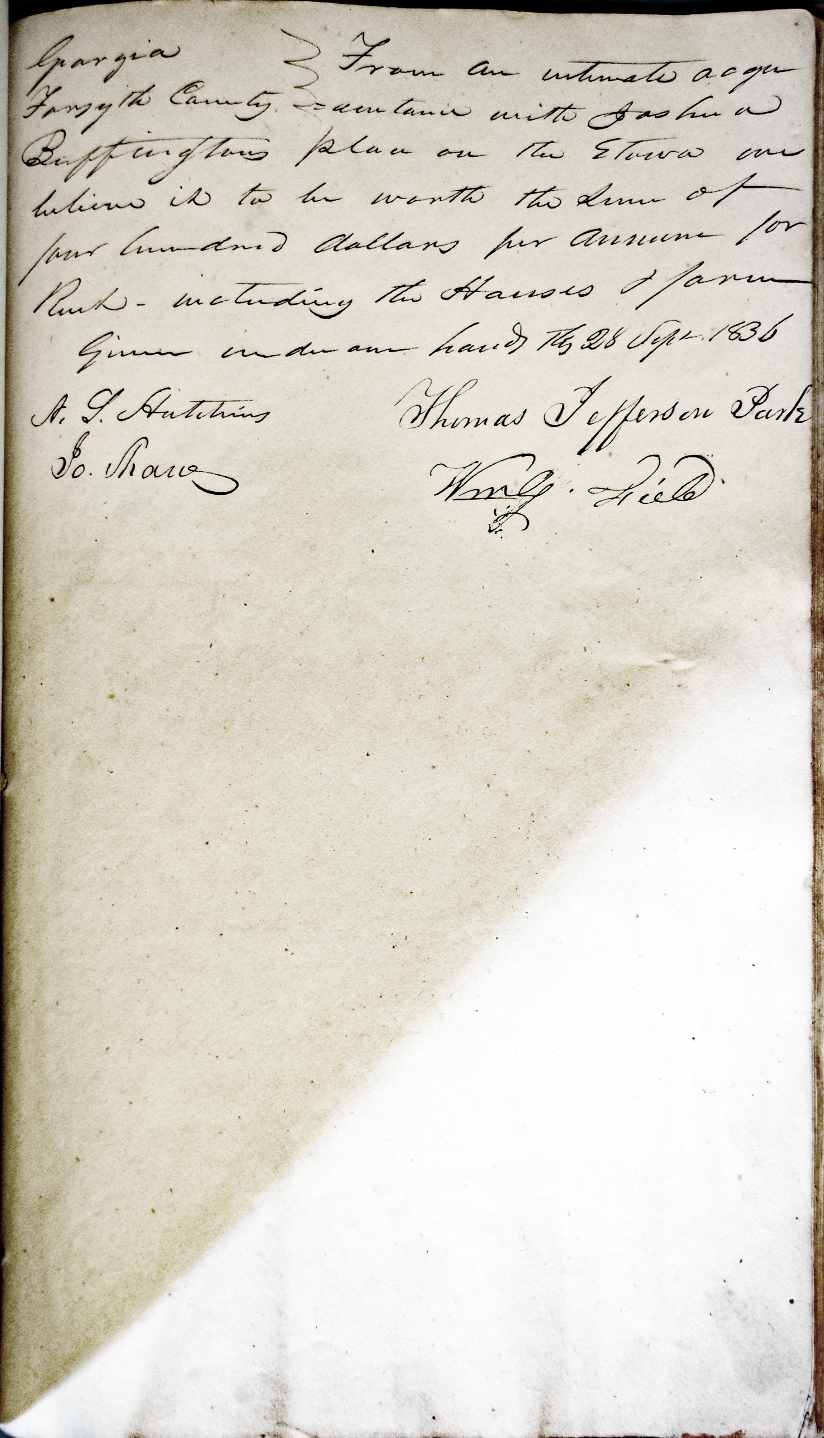 Georgia } From an intimate acqu
Forsyth County } =aintance with Joshua
Buffingtons place on the Etowa we
believe it to be worth the sum of
four hundred dollars per annum for
Rent - including the Houses & farm
Given under our hands this 28 Sept. 1836
N. L. Hutchins
Thomas Jefferson Park
Jo.
Wm G. Field